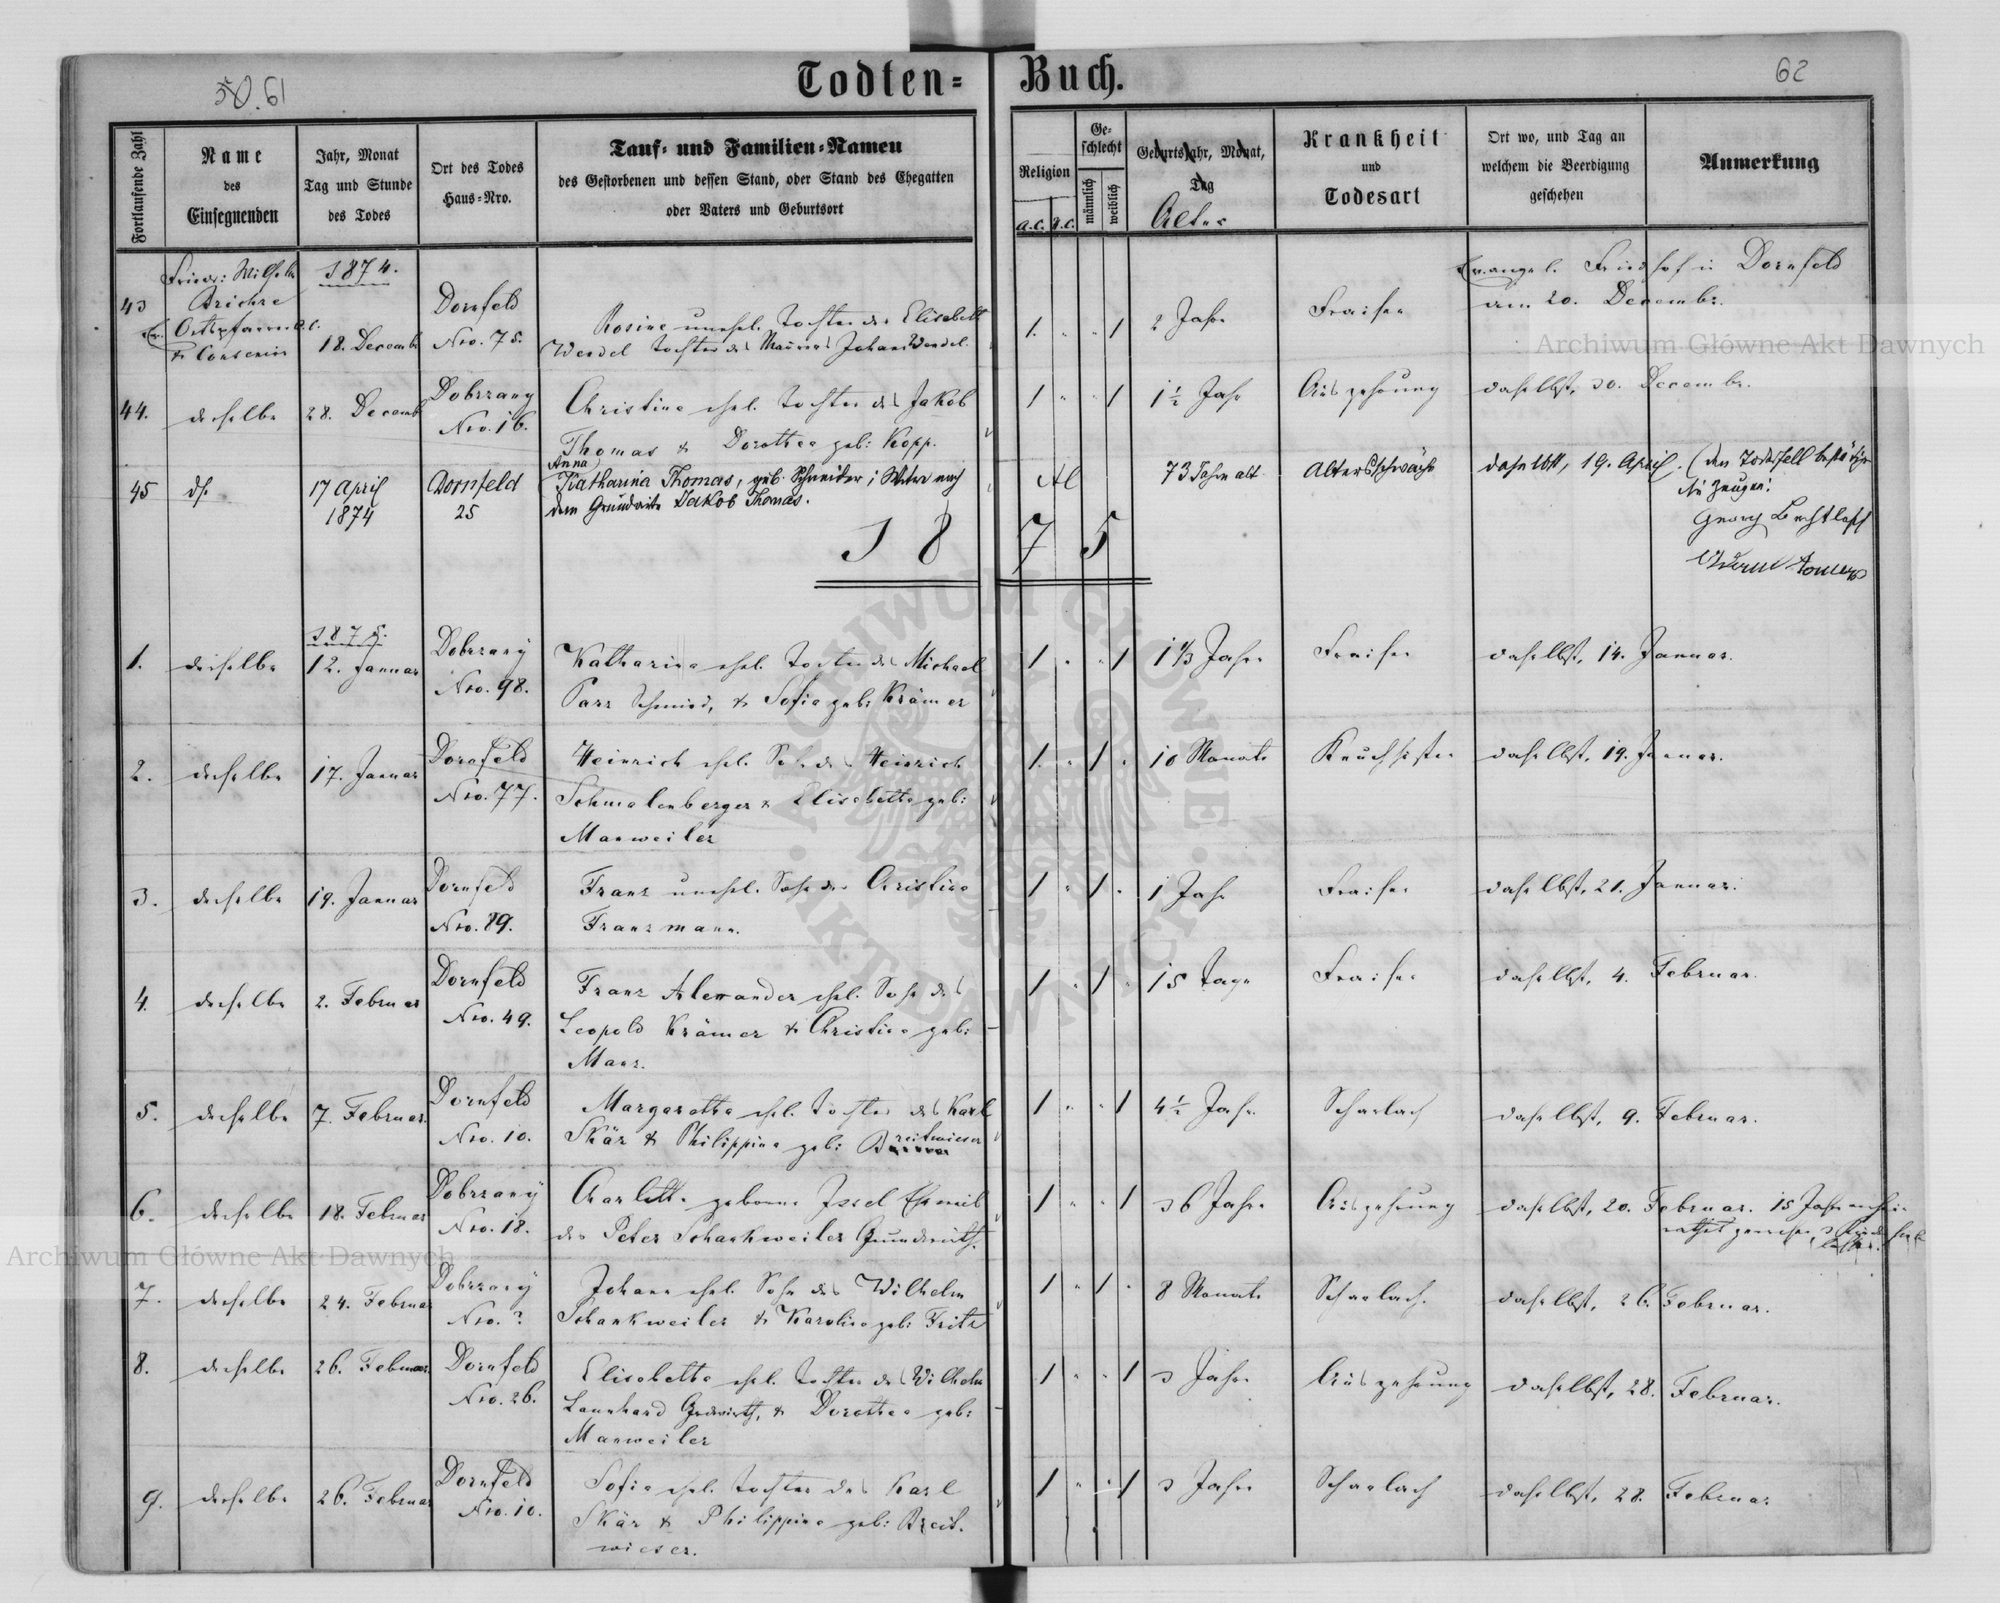 50. 61
Todten-
Buch.
62
Fortlaufende Zahl
Name
des
Einsegnenden
Jahr, Monat
Tag und Stunde
des Todes
Ort des Todes
Haus-Nro.
Tauf- und Familien-Namen
des Gestorbenen und dessen Stand, oder Stand des Ehegatten
oder Vaters und Geburtsort
Religion
a.c.
h.c.
Ge-
schlecht
männlich
weiblich
Geburtsjahr, Monat,
Tag
Alter
Krankheit
und
Todesart
Ort wo, und Tag an
welchem die Beerdigung
geschehen
Anmerkung
43
Friedr: Wilhelm
Ortspfarrer a.c.
& Consenior
1874.
18. Decemb
Dornfeld
Nro. 75.
Rosine unehl. Tochter der Elisabeth
Wendel Tochter des Maurers Johann Wendel.
1. " " 1
2 Jahre
Fraisen
Evangel. Friedhof in Dornfeld
am 20. Decembr.
44.
derselbe
28. Decemb
Dobrzany
Nro. 16.
Christine ehel. Tochter des Jakob
Thomas & Dorothea geb: Kopp.
1 " " 1
1½ Jahr
Auszehrung
daselbst, 30. Decembr.
45
ds.
17 April
1874
Dornfeld
25
Anna
Katharina Thomas, geb. Schneider, Witwe nach
dem Grundwirte Jakob Thomas.
73 Jahre alt
Altersschwäche
daselbst, 19. April.
(den Todesfall bestätigen
die Zeugen:
Georg Bechtloff
1875
1.
derselbe
1875.
12. Januar
Dobrzany
Nro. 98.
Katharina ehel. Tochter des Michael
Parr Schmied, & Sofie geb: Krämer
1 " " 1
1⅓ Jahre
Fraisen
daselbst, 14. Januar.
2.
derselbe
17. Januar
Dornfeld
Nro. 77.
Heinrich ehel. Sohn des Heinrich
Schmalenberger & Elisabetha geb:
Manweiler
1 " 1 "
10 Monate
Keuchhusten
daselbst, 19. Januar.
3.
derselbe
19. Januar
Dornfeld
Nro. 89.
Franz unehl. Sohn der Christine
Franzmann.
1 " 1 "
1 Jahr
Fraisen
daselbst, 21. Januar.
4.
derselbe
2. Februar
Dornfeld
Nro. 49.
Franz Alexander ehel. Sohn des
Leopold Krämer & Christine geb:
Manz.
1 " 1 "
15 Tage
Fraisen
daselbst, 4. Februar.
5.
derselbe
7. Februar.
Dornfeld
Nro. 10.
Margaretha ehel. Tochter des Karl
Skär & Philippine geb: Breitwieser
1 " " 1
4½ Jahr
Scharlach
daselbst, 9. Februar.
6.
derselbe
18. Februar
Dobrzany
Nro. 18.
Charlotte geborene Issel Eheweib
des Peter Schankweiler Grundwirth.
1 " " 1
36 Jahre
Auszehrung
daselbst, 20. Februar.
15 Jahre verhei-
rathet gewesen, 3 Kinder
7.
derselbe
24. Februar
Dobrzany
Nro. ?
Johann ehel. Sohn des Wilhelm
Schankweiler & Karoline geb: Fritz
1 " 1 "
8 Monate
Scharlach.
daselbst, 26. Februar.
8.
derselbe
26. Februar.
Dornfeld
Nro. 26.
Elisabetha ehel. Tochter des Wilhelm
Launhard Grdwirth, & Dorothea geb:
Manweiler
1 " " 1
3 Jahre
Auszehrung
daselbst, 28. Februar.
9.
derselbe
26. Februar
Dornfeld
Nro. 10.
Sofie ehel. Tochter des Karl
Skär & Philippine geb: Breit-
wieser.
1 " " 1
3 Jahre
Scharlach
daselbst, 28. Februar
Archiwum Główne Akt Dawnych
Archiwum Główne Akt Dawnych
ARCHIWUM GŁÓWNE · AKT DAWNYCH ·